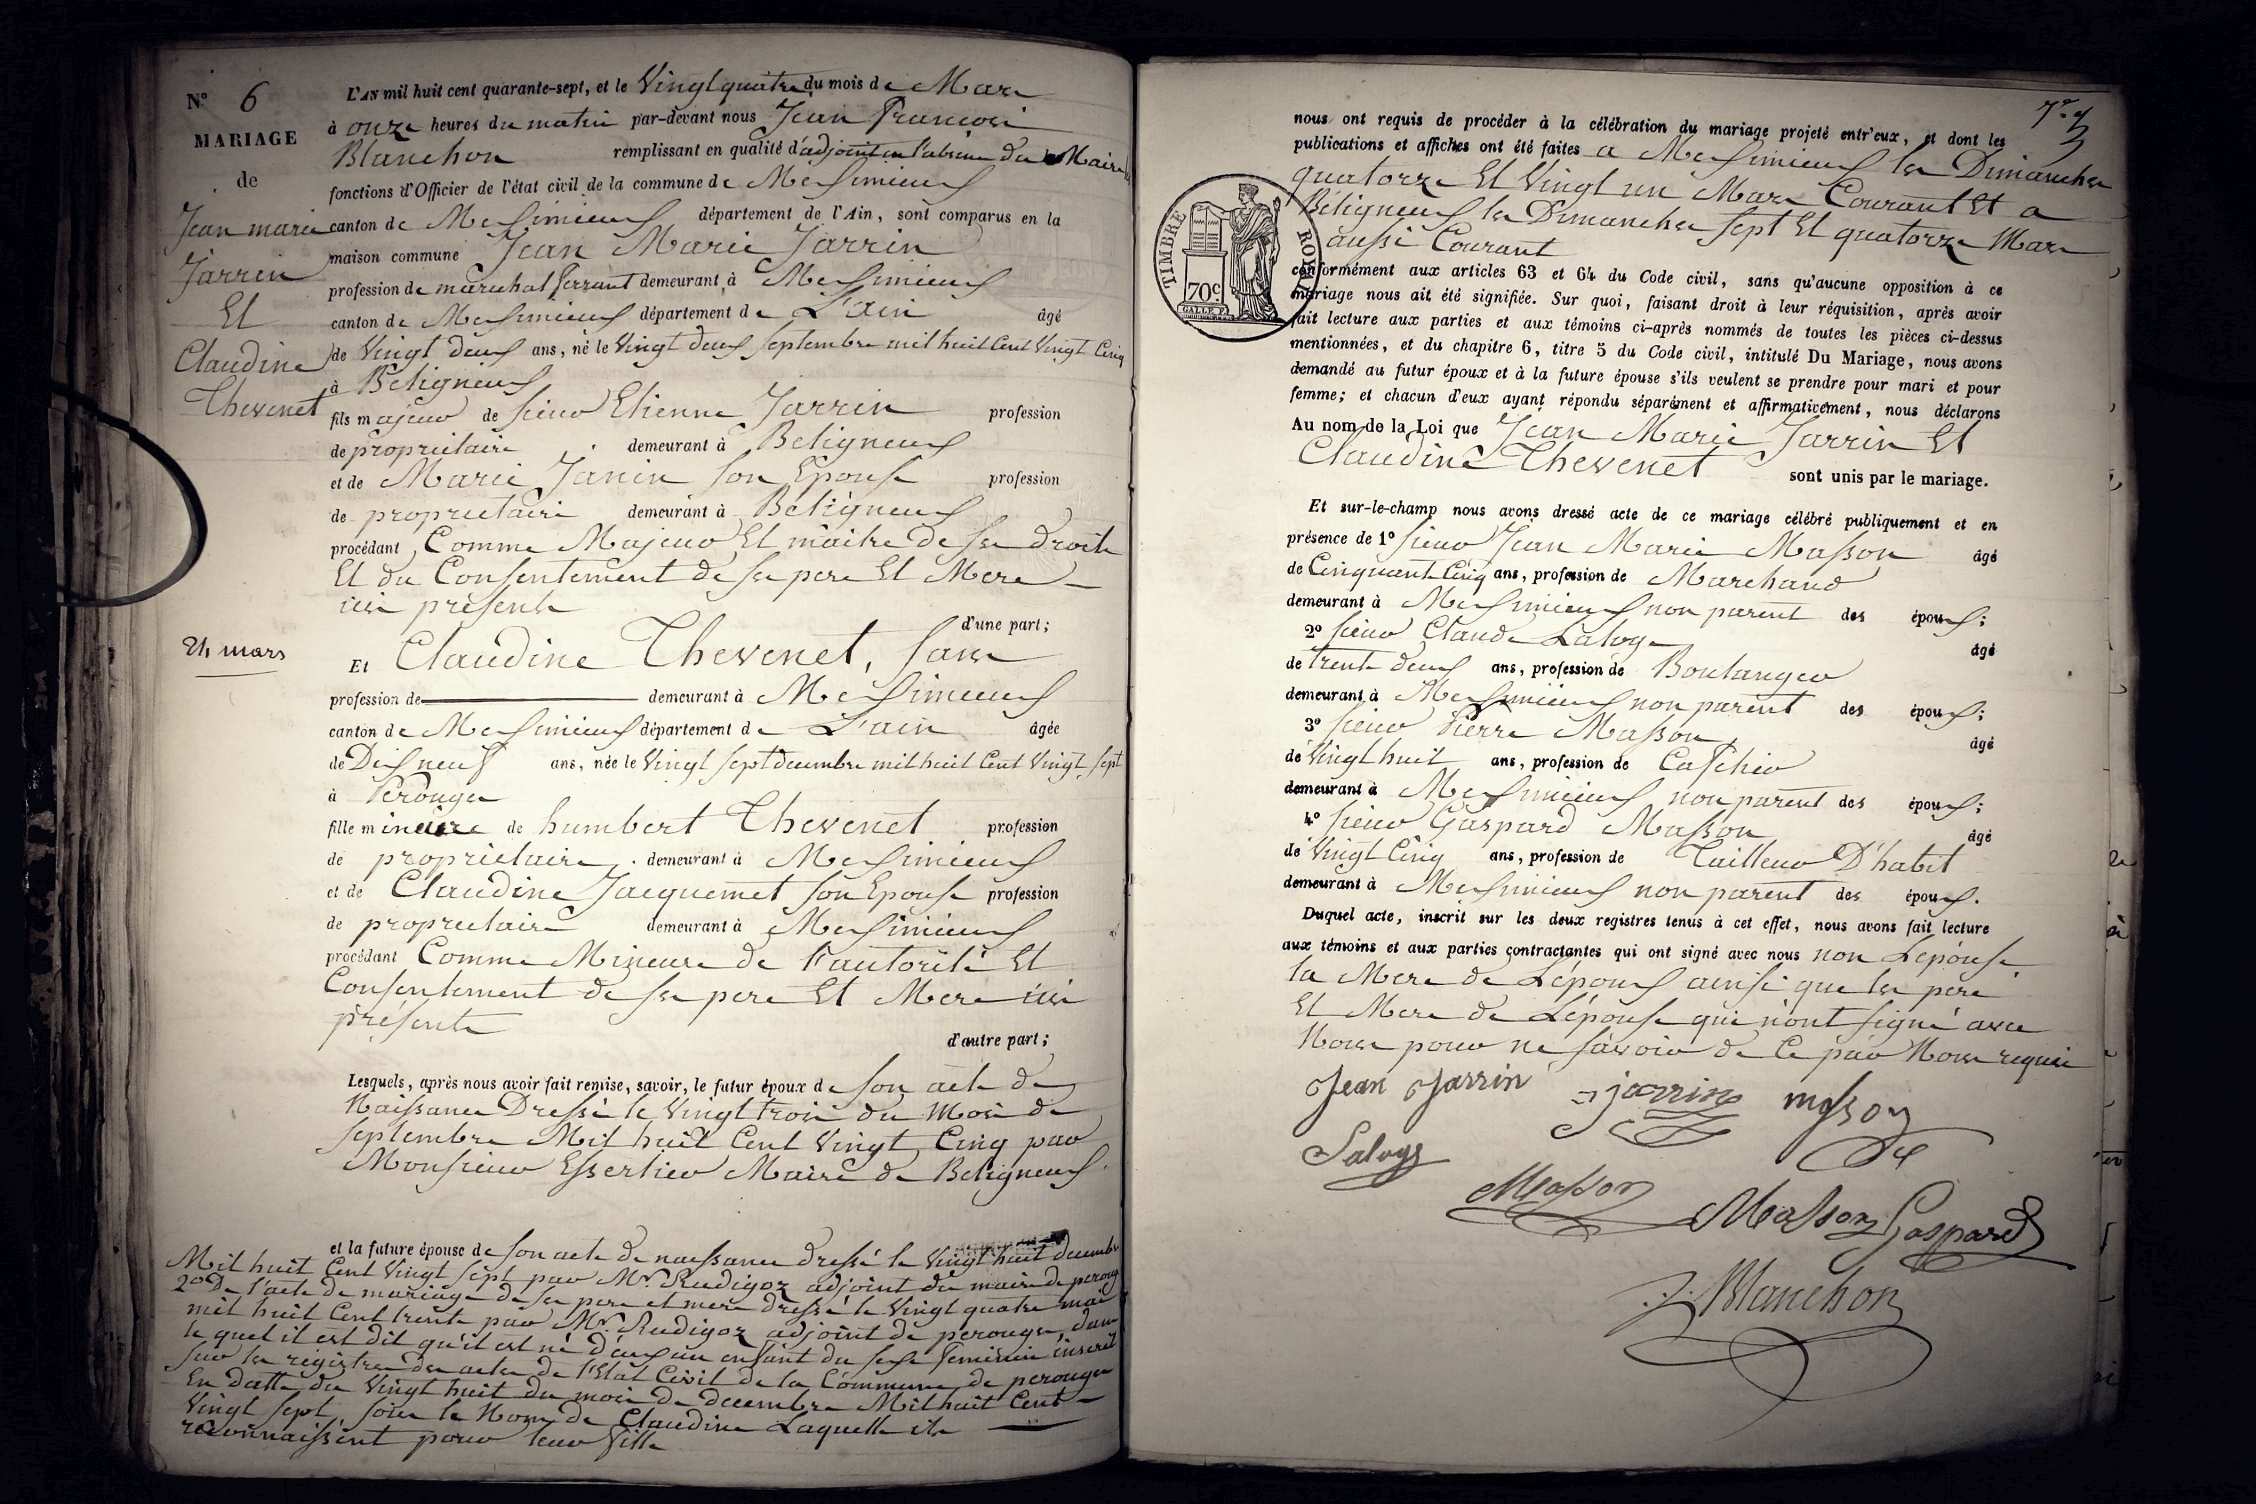 N° 6
MARIAGE
de
Jean marie
Jarrin
Et
Claudine
Thevenet
24 mars
L'AN mil huit cent quarante-sept, et le Vingt quatre du mois de Mars
à onze heures du matin par-devant nous Jean Francois
Blanchon remplissant en qualité d'adjoint en l'absence du Maire les
fonctions d'Officier de l'état civil de la commune de Meximieux
canton de Meximieux département de l'Ain, sont comparus en la
maison commune Jean Marie Jarrin
profession de marechal ferrant demeurant à Meximieux
canton de Meximieux département de L'ain âgé
de Vingt deux ans, né le Vingt deux septembre mil huit Cent Vingt Cinq
à Béligneux
fils majeur de sieur Etienne Jarrin profession
de propriétaire demeurant à Béligneux
et de Marie Janin son Epouse profession
de propriétaire demeurant à Béligneux
procédant Comme Majeur Et maitre de ses droits
Et du Consentement de ses pere Et Mere
ici présents
d'une part;
Et Claudine Thevenet, sans
profession de demeurant à Meximieux
canton de Meximieux département de L'ain âgée
de Dix neuf ans, née le Vingt sept decembre mil huit Cent Vingt sept
à Pérouges
fille mineure de humbert Thevenet profession
de propriétaire demeurant à Meximieux
et de Claudine Jacquemet son Epouse profession
de propriétaire demeurant à Meximieux
procédant Comme Mineure de l'autorité Et
Consentement de ses pere Et Mere ici
présents
d'autre part;
Lesquels, après nous avoir fait remise, savoir, le futur époux de son acte de
Naissance Dressé le Vingt trois du Mois de
septembre Mil huit Cent Vingt Cinq par
Monsieur Essertier Maire de Béligneux
et la future épouse de son acte de naissance dressé le Vingt huit decembre
Mil huit Cent Vingt sept par Mr. Rudigoz adjoint du maire de perouges
2° De l'acte de mariage de ses pere et mere dressé le Vingt quatre mai
mil huit Cent trente par Mr. Rudigoz adjoint de perouges, dans
le quel il est dit qu'il est né d'eux un enfant du sexe feminin inscrit
sur les registres des actes de l'Etat Civil de la Commune de perouges
En datte du Vingt huit du mois de decembre Mil huit Cent
Vingt sept, sous le Nom de Claudine Laquelle ils
reconnaissent pour leur fille
nous ont requis de procéder à la célébration du mariage projeté entr'eux, et dont les
publications et affiches ont été faites a Meximieux les Dimanches
quatorze Et Vingt un Mars Courant Et a
Béligneux les Dimanches sept Et quatorze Mars
aussi Courant
TIMBRE ROYAL
70c
conformément aux articles 63 et 64 du Code civil, sans qu'aucune opposition à ce
mariage nous ait été signifiée. Sur quoi, faisant droit à leur réquisition, après avoir
fait lecture aux parties et aux témoins ci-après nommés de toutes les pièces ci-dessus
mentionnées, et du chapitre 6, titre 5 du Code civil, intitulé Du Mariage, nous avons
demandé au futur époux et à la future épouse s'ils veulent se prendre pour mari et pour
femme; et chacun d'eux ayant répondu séparément et affirmativement, nous déclarons
Au nom de la Loi que Jean Marie Jarrin Et
Claudine Thevenet sont unis par le mariage.
Et sur-le-champ nous avons dressé acte de ce mariage célébré publiquement et en
présence de 1° sieur Jean Marie Masson âgé
de Cinquante Cinq ans, profession de Marchand
demeurant à Meximieux non parent des époux;
2° sieur Claude Laloge âgé
de trente deux ans, profession de Boulanger
demeurant à Meximieux non parent des époux;
3° sieur Pierre Masson âgé
de Vingt huit ans, profession de
demeurant à Meximieux non parent des époux;
4° sieur Gaspard Masson âgé
de Vingt Cinq ans, profession de Tailleur D'habit
demeurant à Meximieux non parent des époux.
Duquel acte, inscrit sur les deux registres tenus à cet effet, nous avons fait lecture
aux témoins et aux parties contractantes qui ont signé avec nous non L'épouse
la Mere de L'époux ainsi que les pere
Et Mere de L'épouse qui n'ont signé avec
Nous pour ne savoir de Ce par Nous requis
Jean Jarrin jarrin masson
Laloge
Masson Masson Gaspard
J. Blanchon